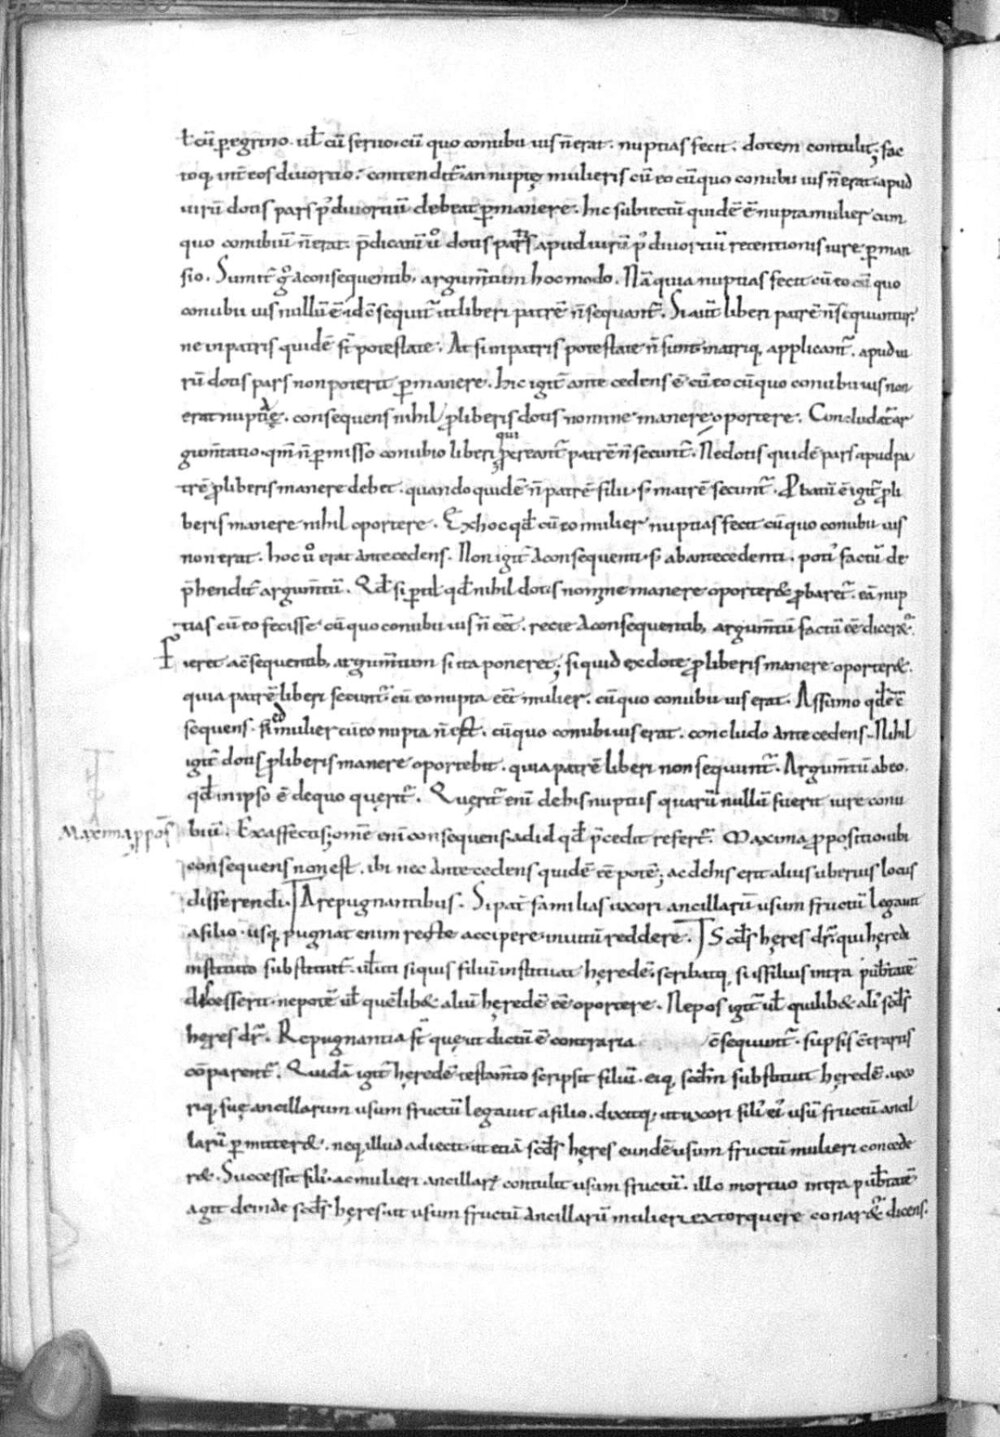 ł cū peregrino. vł cū seruo. cū quo conubii ius n̄ erat. nuptias fecit. dotem contulit; fac
toq; int̄ eos diuortio. contendit̄ an nuptę mulieris cū eo cū quo conubii ius n̄ erat. apud
uirū dotis pars p̄ diuortiū debeat ꝑmanere. Hic subiectū quidē ē nupta mulier cum
quo conubiū n̄ erat. p̄dicatiuū u̇o dotis pars apud uirū p̄ diuortiū retentionis iure ꝑman
sio. Sumit̄ gͦ a consequentib; argum̄tum hoc modo. Nā quia nuptias fecit cū eo cū quo
conubii ius nullū ē. idē sequit̄ ut liberi patrē n̄ sequant̄. Si aut̄ liberi patrē n̄ sequuntur.
ne in patris quidē st̄ potestate. At si in patris potestate n̄ sunt. matriq; applicant̄. apud ui
rū dotis pars non poterit ꝑmanere. Hic igit̄ ante cedens ē cū eo cū quo conubii ius non
erat nuptię. consequens nihil ꝓ liberis dotis nomine manere oportere. Concludat̄ ar
gum̄tatio. qm̄ n̄ ꝑmisso conubio liberi qui ꝓcreant̄ patrē n̄ secunt̄. Ne dotis quidē pars apud pa
trē ꝓ liberis manere debet. quando quidē n̄ patrē filii. s; matrē secunt̄. Ꝓbatū ē igit̄ ꝓ li
beris manere nihil oportere. Ex hoc qđ cū eo mulier nuptias fecit cū quo conubii ius
non erat. hoc u̇o erat antecedens. Non igit̄ a consequenti. s; ab antecedenti. poti᾽ factū de
p̄hendit̄ argum̄tū. Qđ si ꝑ id qđ nihil dotis nomine manere oporter& ꝓbaret̄. eā nup
tias cū eo fecisse cū quo conubii ius n̄ eēt. recte a consequentib; argum̄tū factū eē dicer&̄.
Fieret a c̄sequentib; argum̄tum si ita poneret; si quid ex dote ꝓ liberis manere oporter&.
quia patrē liberi secunt̄. cū eo nupta eēt mulier. cū quo conubii ius erat. Assumo qđ ē c̄
sequens. sed mulier cū eo nupta n̄ est. cū quo conubii ius erat. concludo ante cedens. Nihil
igit̄ dotis ꝓ liberis manere oportebit. quia patrē liberi non sequunt̄. Argum̄tū ab eo.
qđ in ipso ē de quo querit̄. Querit̄ enī de his nuptiis quarū nullū fuerit iure conu
Maxima ꝓpos̄
biū. Ex affectis; omē enī consequens. ad id qđ p̄cedit refert̄. Maxima ꝓpositio. ubi
consequens non est. ibi nec ante cedens quidē eē potē; ac de his erit alius uberius locus
differendi. A repugnantibus. Si pat̄ familias uxori ancillarū usum fructū legauit
a filio. usq; pugnat enim recte accipere. inuitū reddere. Scđs hęres dr̄. qui hęredi
instituto substituit̄. ułuti si quis filiū instituat hęredē. scribatq; si is filius intra pub̄tatē
decesserit. nepotē uł quēlib& aliū hęredē eē oportere. Nepos igit̄ uł quilib& ali᾽ scđs
hęres dr̄. Repugnantia st̄ que ut dictū ē contraria c̄sequunt̄. sup sis c̄trariis
cōparent̄. Quidā igit̄ hęredē testam̄to scripsit filiū. eiq; scđm substituit hęredē. uxo
riq; suę ancillarum usum fructū legauit a filio. dixitq; ut uxori fili᾽ ei᾽ usū fructū ancil
larū ꝑmitter&. neq; illud adiecit. ut etiā scđs hęres eundē usum fructū mulieri concede
r&. Successit fili᾽. ac mulieri ancillarꝝ contulit usum fructū. illo mortuo intra pub̄tatē
agit deinde scđs hęres. ut usum fructū ancillarū mulieri extorquere conar&̄ dicens.